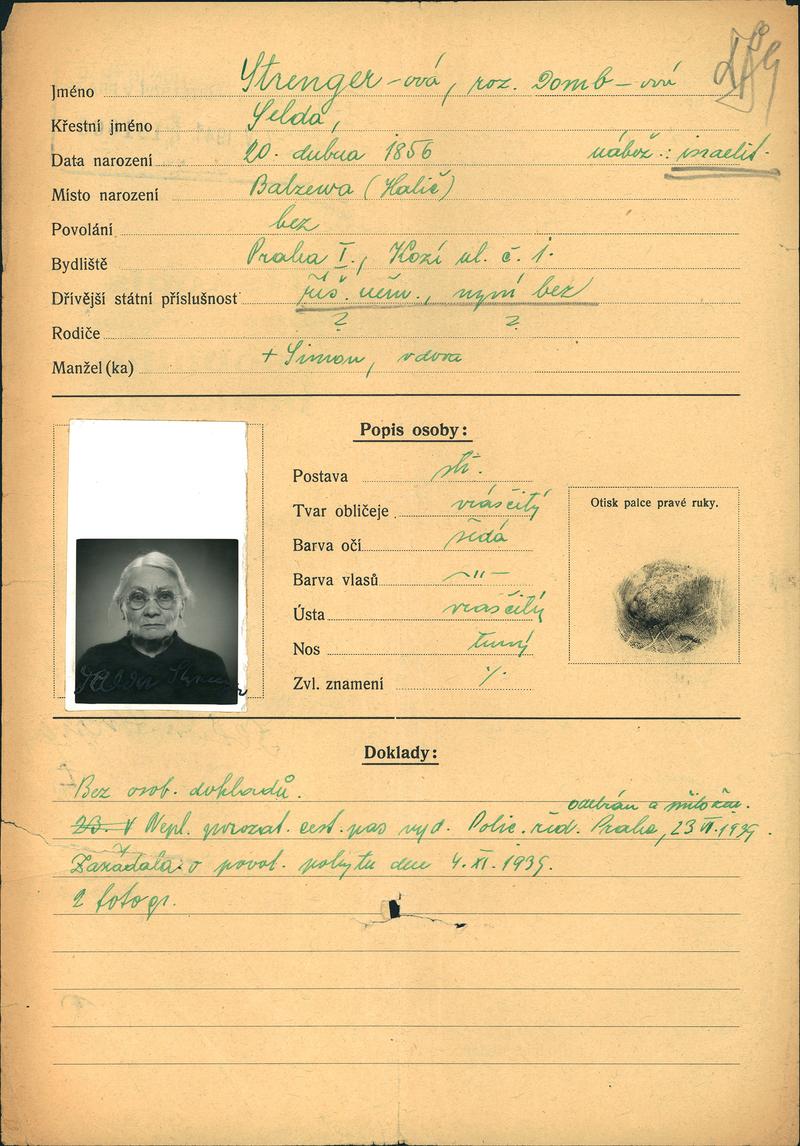 Jméno Strenger-ová, roz. Domb-ová
Křestní jméno Selda,
Data narození 20. dubna 1856 nábož.: israelit.
Místo narození Balzewa (Halič)
Povolání bez
Bydliště Praha I., Kozí ul. č. 1.
Dřívější státní příslušnost říš. něm., nyní bez
Rodiče ? ?
Manžel(ka) + Simon, vdova
Popis osoby:
Postava stř.
Tvar obličeje vrásčitý
Barva očí šedá
Barva vlasů —"—
Ústa vrásčitý
Nos tupý
Zvl. znamení ·/·
Otisk palce pravé ruky.
Doklady:
Bez osob. dokladů.
odebrán a přiložen.
23. V Nepl. prozat. cest. pas vyd. Polic. řed. Praha, 23 VI. 1939.
Zažádala o povol. pobytu dne 4. XI. 1939.
2 fotogr.